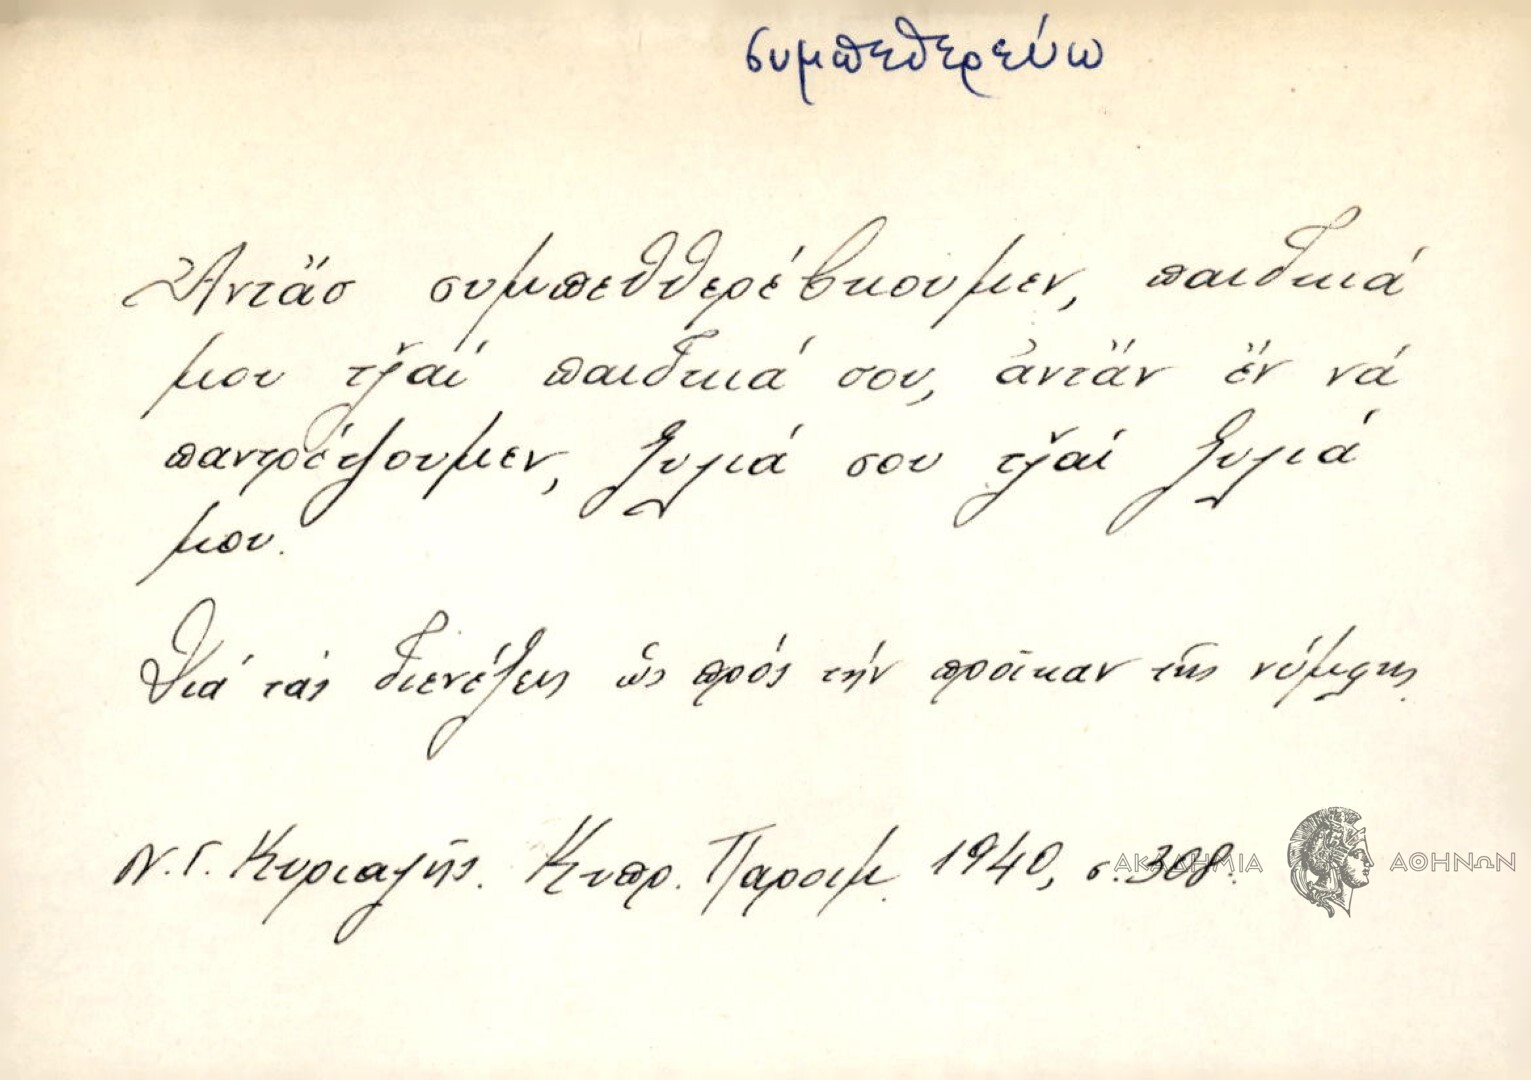 συμπεθερεύω
Ἀντᾶσ συμπεθθερέβκουμεν, παιδκιά
μου τζ̆αί παιδκιά σου, ἀντάν ἔν νά
παντρέψουμεν, ξυλιά σου τζ̆αί ξυλιά
μου.
Διά τάς διενέξεις ὡς πρός τήν προῖκαν τῆς νύμφης.
Ν. Γ. Κυριαζῆς. Κυπρ. Παροιμ. 1940, σ. 308.
ΑΚΑΔΗΜΙΑ ΑΘΗΝΩΝ